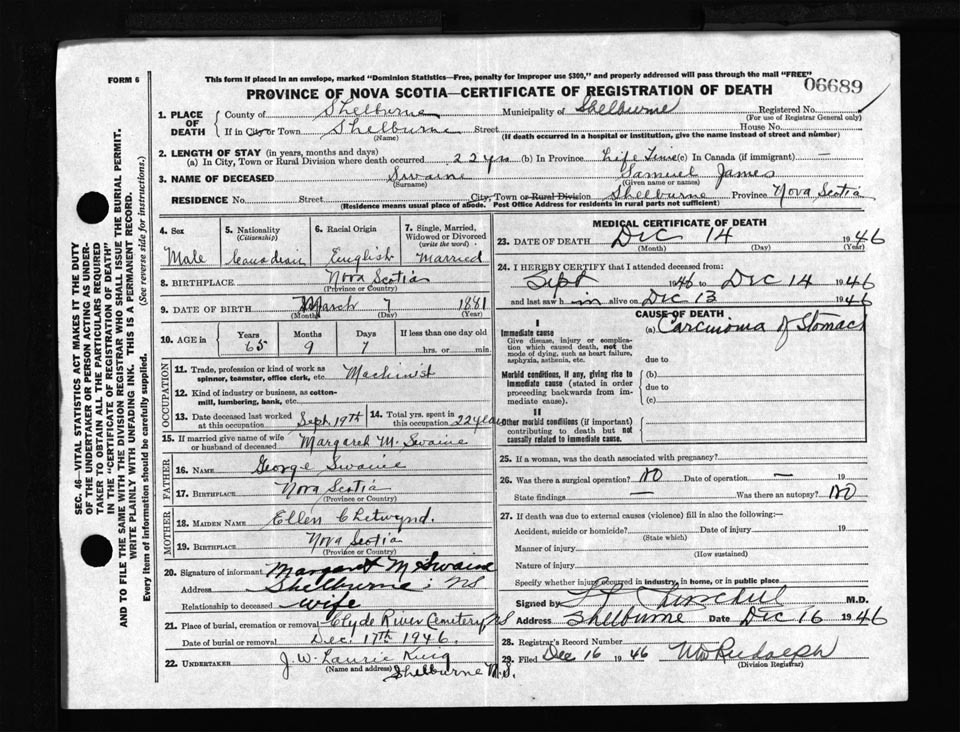 FORM 6
This form if placed in an envelope, marked "Dominion Statistics—Free, penalty for improper use $300," and properly addressed will pass through the mail "FREE"
06689
PROVINCE OF NOVA SCOTIA—CERTIFICATE OF REGISTRATION OF DEATH
1. PLACE OF DEATH
County of Shelburne Municipality of Shelburne Registered No.
(For use of Registrar General only)
If in City or Town Shelburne Street House No.
(Name) (If death occurred in a hospital or institution, give the name instead of street and number)
2. LENGTH OF STAY (in years, months and days)
(a) In City, Town or Rural Division where death occurred 22 yrs (b) In Province Life Time (c) In Canada (if immigrant) —
3. NAME OF DECEASED Swaine Samuel James
(Surname) (Given name or names)
RESIDENCE No. Street City, Town or Rural Division Shelburne Province Nova Scotia
(Residence means usual place of abode. Post Office Address for residents in rural parts not sufficient)
4. Sex
Male
5. Nationality
(Citizenship)
Canadian
6. Racial Origin
English
7. Single, Married, Widowed or Divorced
(write the word)
Married
8. BIRTHPLACE Nova Scotia
(Province or Country)
9. DATE OF BIRTH March 7 1881
(Month) (Day) (Year)
10. AGE in
Years Months Days If less than one day old
65 9 7 hrs. or min
OCCUPATION
11. Trade, profession or kind of work as spinner, teamster, office clerk, etc. Machinist
12. Kind of industry or business, as cotton-mill, lumbering, bank, etc.
13. Date deceased last worked at this occupation Sept 19th
14. Total yrs. spent in this occupation 22 years
15. If married give name of wife or husband of deceased Margaret M. Swaine
FATHER
16. NAME George Swaine
17. BIRTHPLACE Nova Scotia
(Province or Country)
MOTHER
18. MAIDEN NAME Ellen Chetwynd.
19. BIRTHPLACE Nova Scotia
(Province or Country)
20. Signature of informant Margaret M Swaine
Address Shelburne NS
Relationship to deceased wife
21. Place of burial, cremation or removal Clyde River Cemetery NS
Date of burial or removal Dec. 17th 1946.
22. UNDERTAKER J. W. Laurie King
(Name and address) Shelburne N.S.
MEDICAL CERTIFICATE OF DEATH
23. DATE OF DEATH Dec 14 1946
(Month) (Day) (Year)
24. I HEREBY CERTIFY that I attended deceased from:
Sept 1946 to Dec 14 1946
and last saw him alive on Dec 13 1946
CAUSE OF DEATH
I
Immediate cause (a) Carcinoma of Stomach
Give disease, injury or complication which caused death, not the mode of dying, such as heart failure, asphyxia, asthenia, etc.
due to
Morbid conditions, if any, giving rise to immediate cause (stated in order proceeding backwards from immediate cause).
(b)
due to
(c)
II
Other morbid conditions (if important) contributing to death but not causally related to immediate cause.
25. If a woman, was the death associated with pregnancy?
26. Was there a surgical operation? NO Date of operation — 19
State findings — Was there an autopsy? NO
27. If death was due to external causes (violence) fill in also the following:—
Accident, suicide or homicide? Date of injury 19
(State which)
Manner of injury
(How sustained)
Nature of injury
Specify whether injury occurred in industry, in home, or in public place
Signed by M.D.
Address Shelburne Date Dec 16 1946
28. Registrar's Record Number
29. Filed Dec 16 1946 Wm Rudolph
(Division Registrar)
SEC. 46—VITAL STATISTICS ACT MAKES IT THE DUTY
OF THE UNDERTAKER OR PERSON ACTING AS UNDER-
TAKER TO OBTAIN ALL THE PARTICULARS REQUIRED
IN THE "CERTIFICATE OF REGISTRATION OF DEATH"
AND TO FILE THE SAME WITH THE DIVISION REGISTRAR WHO SHALL ISSUE THE BURIAL PERMIT.
WRITE PLAINLY WITH UNFADING INK. THIS IS A PERMANENT RECORD.
Every item of information should be carefully supplied. (See reverse side for instructions.)